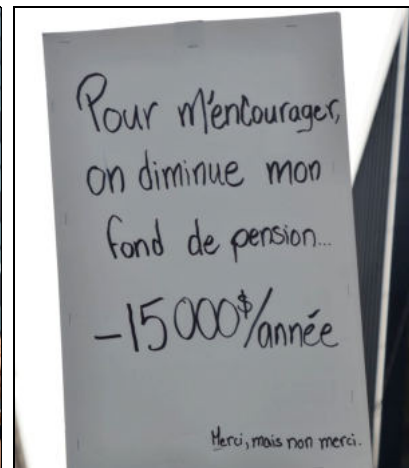 Pour m'encourager,
on diminue mon
fond de pension...
-15 000$/année
Merci, mais non merci.